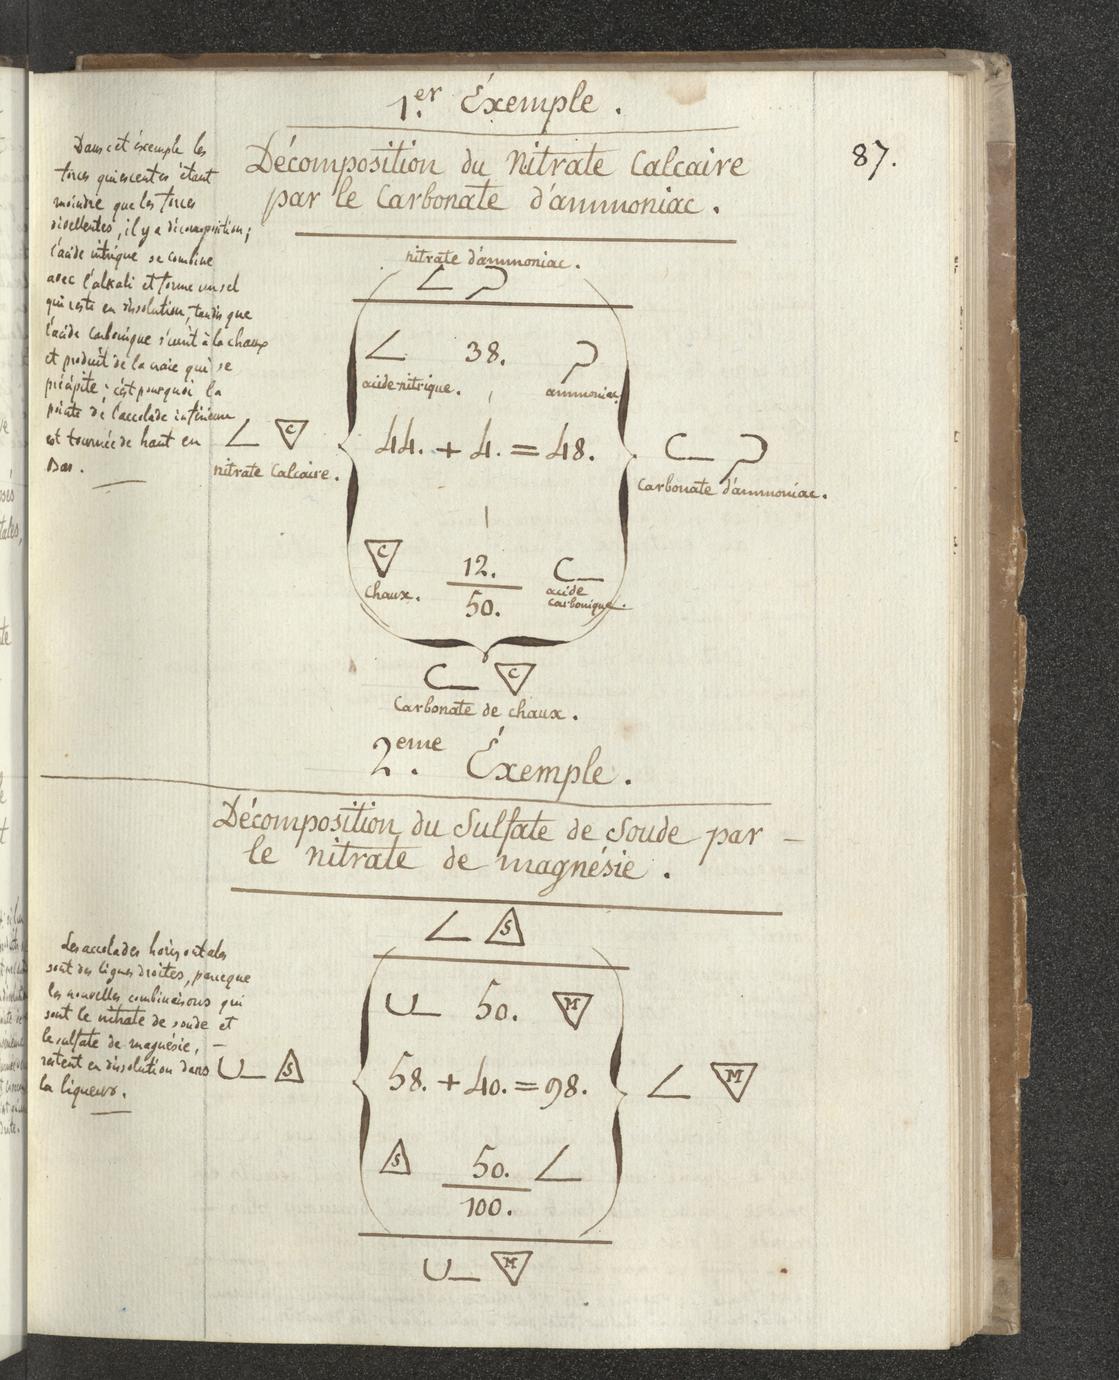 87.
1.er Éxemple.
Décomposition du Nitrate Calcaire
par le Carbonate d'ammoniac.
Dans cet éxemple les
forces quiescentes étant
moindre que les forces
divellentes, il y a décomposition;
l'acide nitrique se combine
avec l'alkali et forme un sel
qui reste en dissolution, tandis que
l'acide Carbonique s'unit à la chaux
et produit de la craie qui se
précipite; c'est pourquoi la
pointe de l'accolade inférieure
est tournée de haut en
Bas.
nitrate d'ammoniac.
38.
acide nitrique.
ammoniac.
44. + 4. = 48.
nitrate Calcaire.
Carbonate d'ammoniac.
C
C
12.
50.
chaux.
acide
carbonique.
C
Carbonate de chaux.
2.eme Éxemple.
Décomposition du Sulfate de Soude par –
le nitrate de magnésie.
Les accolades horisontales
sont des lignes droites, parceque
les nouvelles combinaisons qui
sont le nitrate de soude et
le sulfate de magnésie, –
restent en dissolution dans
la liqueur.
S
50. M
S
58. + 40. = 98.
M
S
50.
100.
M